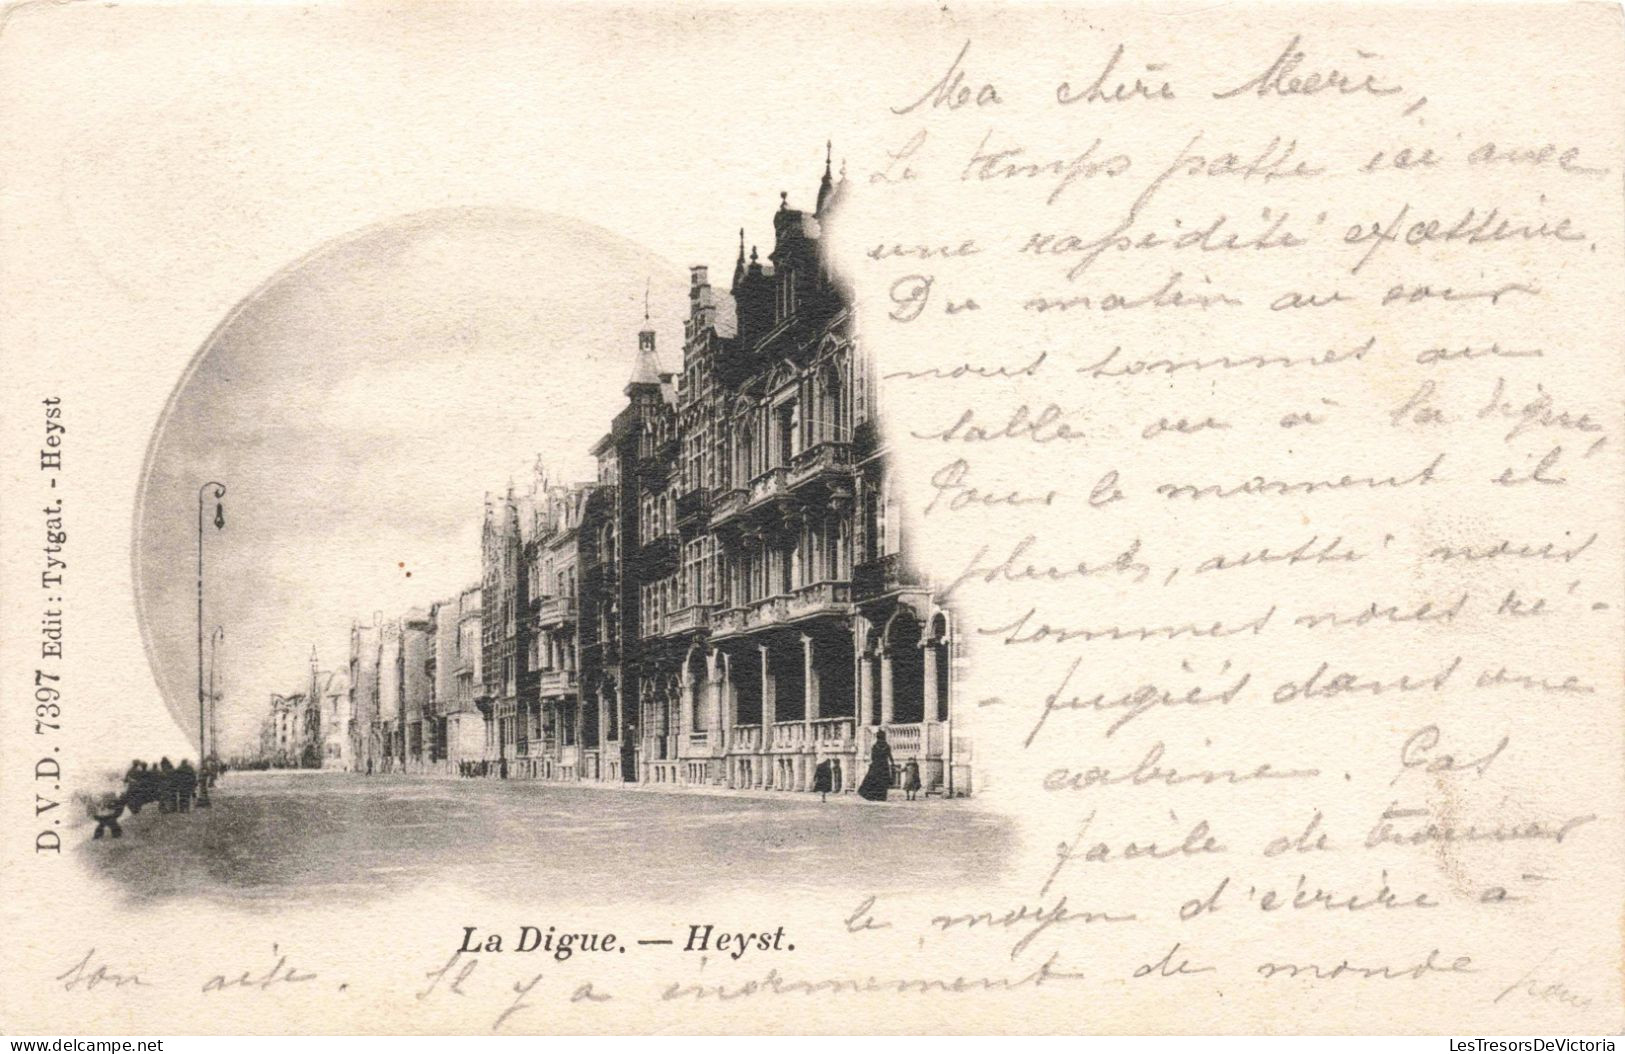 Ma chère Mère,
Le temps passe ici avec
une rapidité excessive.
Du matin au soir
nous sommes au
sable ou à la digue,
Pour le moment il
pleut, aussi nous
sommes nous ré-
-fugiés dans une
cabine. Pas
facile de trouver
le moyen d'écrire à
son aise. Il y a énormement de monde
pour
La Digue. — Heyst.
D.V.D. 7397 Edit: Tytgat. - Heyst
delcampe.net
LesTresorsDeVictoria